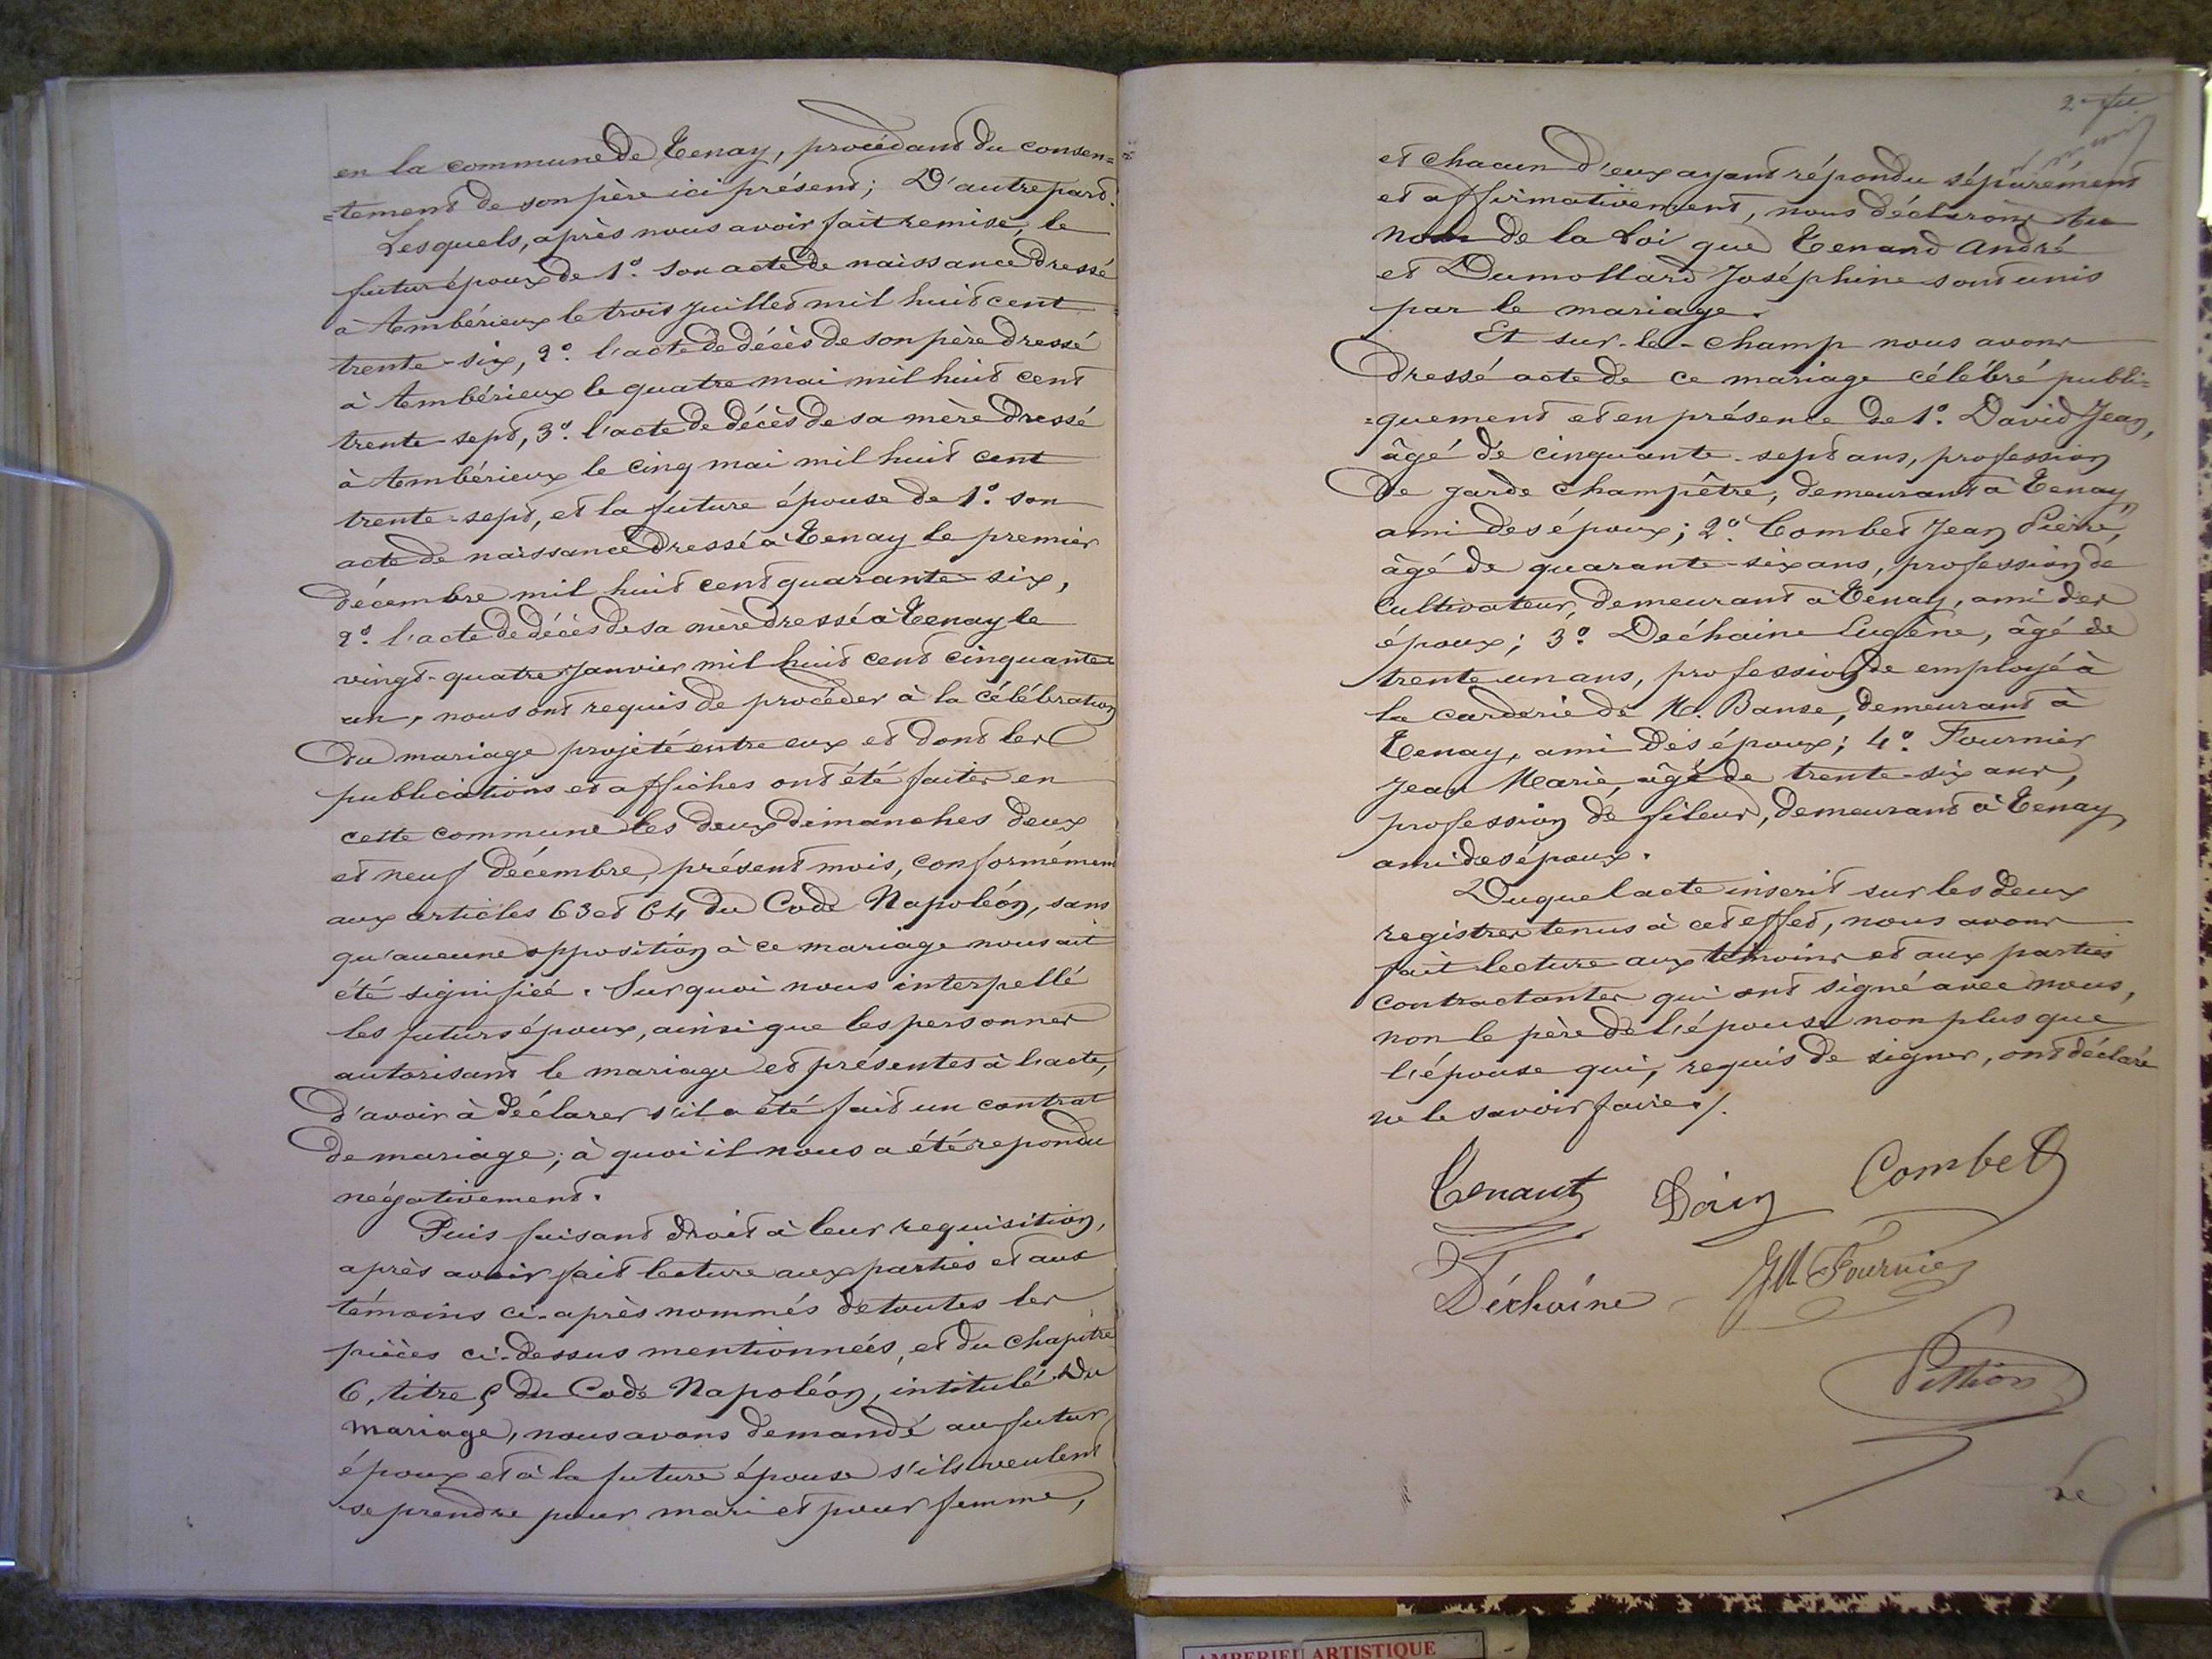 en la commune de Tenay, procédant du consen=
=tement de son père ici présent; D'autre part.
Lesquels, après nous avoir fait remise, le
futur époux de 1º. son acte de naissance dressé
à Ambérieux le trois juillet mil huit cent
trente-six, 2º. l'acte de décès de son père dressé
à Ambérieux le quatre mai mil huit cent
trente-sept, 3º. l'acte de décès de sa mère dressé
à Ambérieux le cinq mai mil huit cent
trente-sept, et la future épouse de 1º. son
acte de naissance dressé à Tenay le premier
décembre mil huit cent quarante-six,
2º. l'acte de décès de sa mère dressé à Tenay le
vingt-quatre janvier mil huit cent cinquante
un, nous ont requis de procéder à la célébration
du mariage projeté entre eux et dont les
publications et affiches ont été faites en
cette commune les deux dimanches deux
et neuf décembre, présent mois, conformément
aux articles 63 et 64 du Code Napoléon, sans
qu'aucune opposition à ce mariage nous ait
été signifiée. Sur quoi nous interpellé
les futurs époux, ainsi que les personnes
autorisant le mariage et présentes à l'acte,
d'avoir à déclarer s'il a été fait un contrat
de mariage; à quoi il nous a été repondu
négativement.
Puis faisant droit à leur requisition,
après avoir fait lecture aux parties et aux
témoins ci-après nommés de toutes les
pièces ci-dessus mentionnées, et du chapitre
6, titre 5 du Code Napoléon, intitulé Du
mariage, nous avons demandé au futur
époux et à la future épouse s'ils veulent
se prendre pour mari et pour femme,
et chacun d'eux ayant répondu séparément
et affirmativement, nous déclarons Au
nom de la Loi que Tenand André
et Dumollard Joséphine sont unis
par le mariage.
Et sur-le-champ nous avons
dressé acte de ce mariage célébré publi=
=quement et en présence de 1º. David Jean,
âgé de cinquante-sept ans, profession
de garde champêtre, demeurant à Tenay,
ami des époux; 2º. Combet Jean Pierre,
âgé de quarante-six ans, profession de
cultivateur, demeurant à Tenay, ami des
époux; 3º. Dechaine Eugène, âgé de
trente un ans, profession de employé à
la carderie de M. Banse, demeurant à
Tenay, ami des époux; 4º. Fournier
Jean Marie, âgé de trente-six ans,
profession de fileur, demeurant à Tenay,
ami des époux.
Duquel acte inscrit sur les deux
registres tenus à cet effet, nous avons
fait lecture aux témoins et aux parties
contractantes qui ont signé avec nous,
non le père de l'épouse non plus que
l'épouse qui, requis de signer, ont déclaré
ne le savoir faire./.
Tenant Combet
Déchaine JM Fournier
Le
AMBERIEU ARTISTIQUE